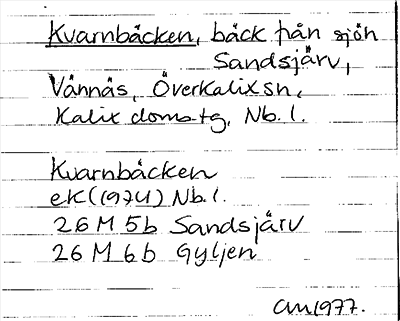 Kvarnbäcken, bäck från sjön
Sandsjärv,
Vännäs, Överkalix sn,
Kalix doms-tg, Nb. l.
Kvarnbäcken
eK (1974) Nb. l.
26 M 5b Sandsjärv
26 M 6b Gyljen
1977.